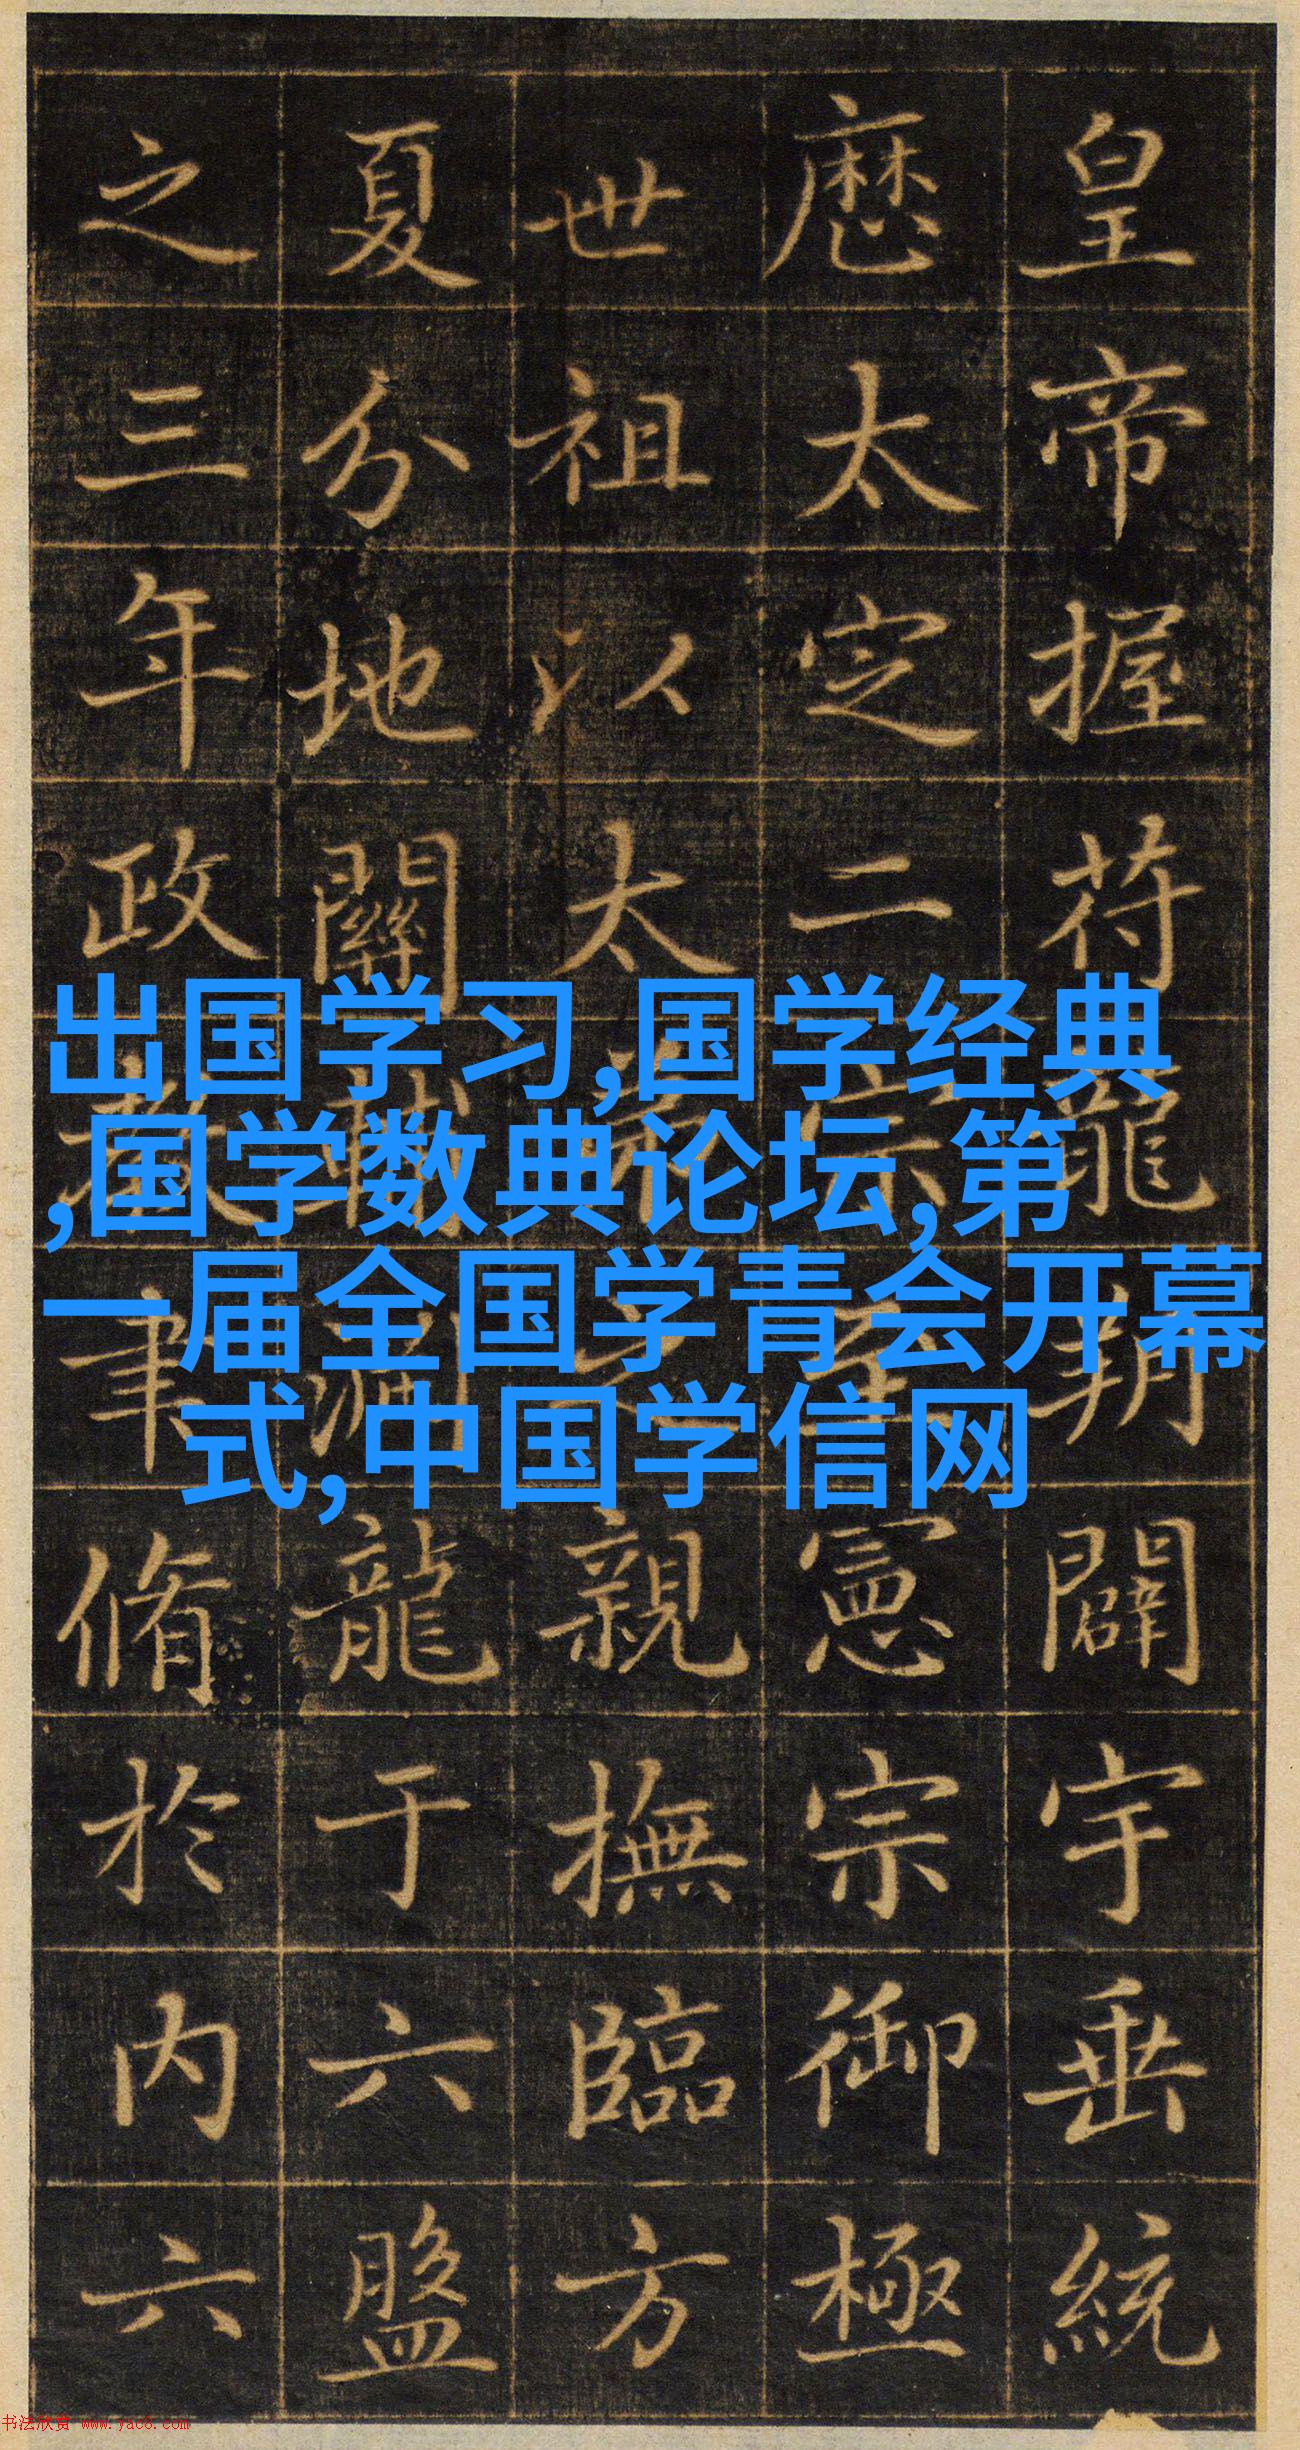 皇帝握符龍朔闢宇垂統
歷太定二宗至憲宗御極
世祖以太弟之親撫臨方
夏分地關輔淵龍于六盤
之三年政教聿脩於内六
出国学习,国学经典
,国学数典论坛,第
一届全国学青会开幕
式,中国学信网
书法欣赏 www.yac8.com